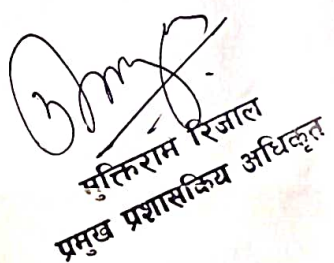 मुक्तिराम रिजाल
प्रमुख प्रशासकिय अधिकृत